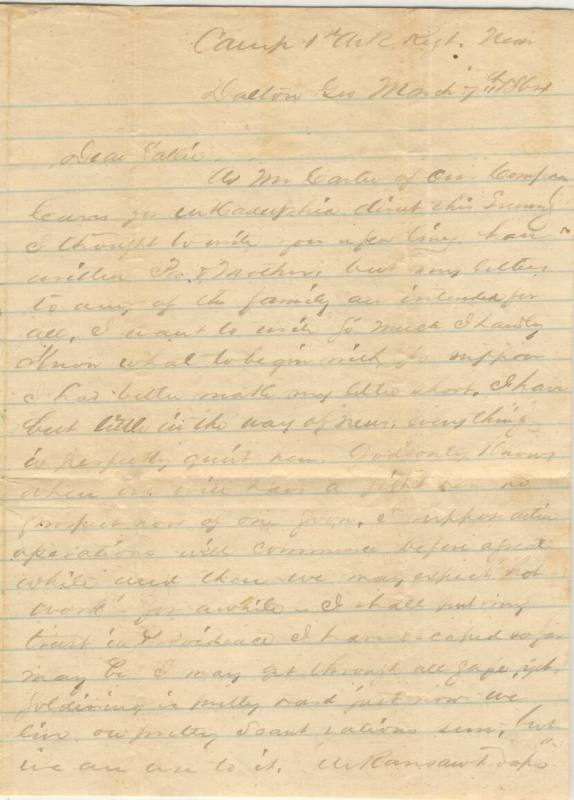 Camp 1st Ark Regt. Near
Dalton Geo March 7th 1864
Dear
As Mr Carter of Our Company
leaves for Arkadelphia direct this Evening
I thought to write you a few lines, have
written Pa & Mother, but my letters
to any of the family are intended for
all, I want to write so much I hardly
Know what to begin with, so suppose
I had better make my letter short. I have
but little in the way of news. everything
is perfectly quiet here. God only Knows
when we will have a fight
prospect now of one soon, I suppose active
operations will commence before a great
while and then we may expect hot
work for awhile - I shall put my
trust in Providence I have escaped so far
may be I may get through all safe, yet.
Soldiering is pretty hard just now we
live on pretty scant rations sure, but
we are use to it. "Arkansaw troops"